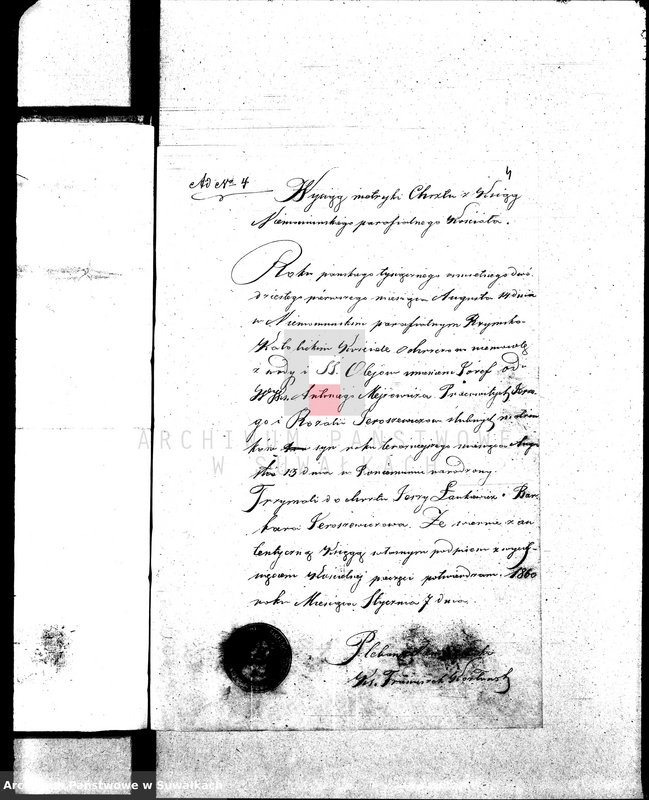 Ad Nr 4
4
Wyciąg metryki Chrztu z Księgi
Niemonuńskiego parafialnego Kościoła.
Roku pańskiego tysiącznego osmsetnego dwu-
dziestego pierwszego miesiąca Augusta 14 dnia
w Niemonuńskim parafialnym Rzymsko-
Katolickim Kościele ochrzczono niemowlę
z wody i SS. Olejów imieniem Józef od
Antoniego Mejewicza
go i Rozalii Jeroszewiczow ślubnych małżon-
ków syn roku teraźniejszego miesiąca Augu-
sta 13 dnia w Poniemuniu narodzony.
Trzymali do chrztu Jerzy Jankiewicz i Bar-
bara Jeroszewiczowa. Że wiernie z au-
tentyczną Księgą własnym podpisem z wyci-
śnięciem Kościelnej pieczęci potwierdzam. 1860
roku Miesiąca Stycznia 7 dnia.
Pleban
Ks. Franciszek
ARCHIWUM PAŃSTWOWE
W SUWAŁKACH
Archiwum Państwowe w Suwałkach